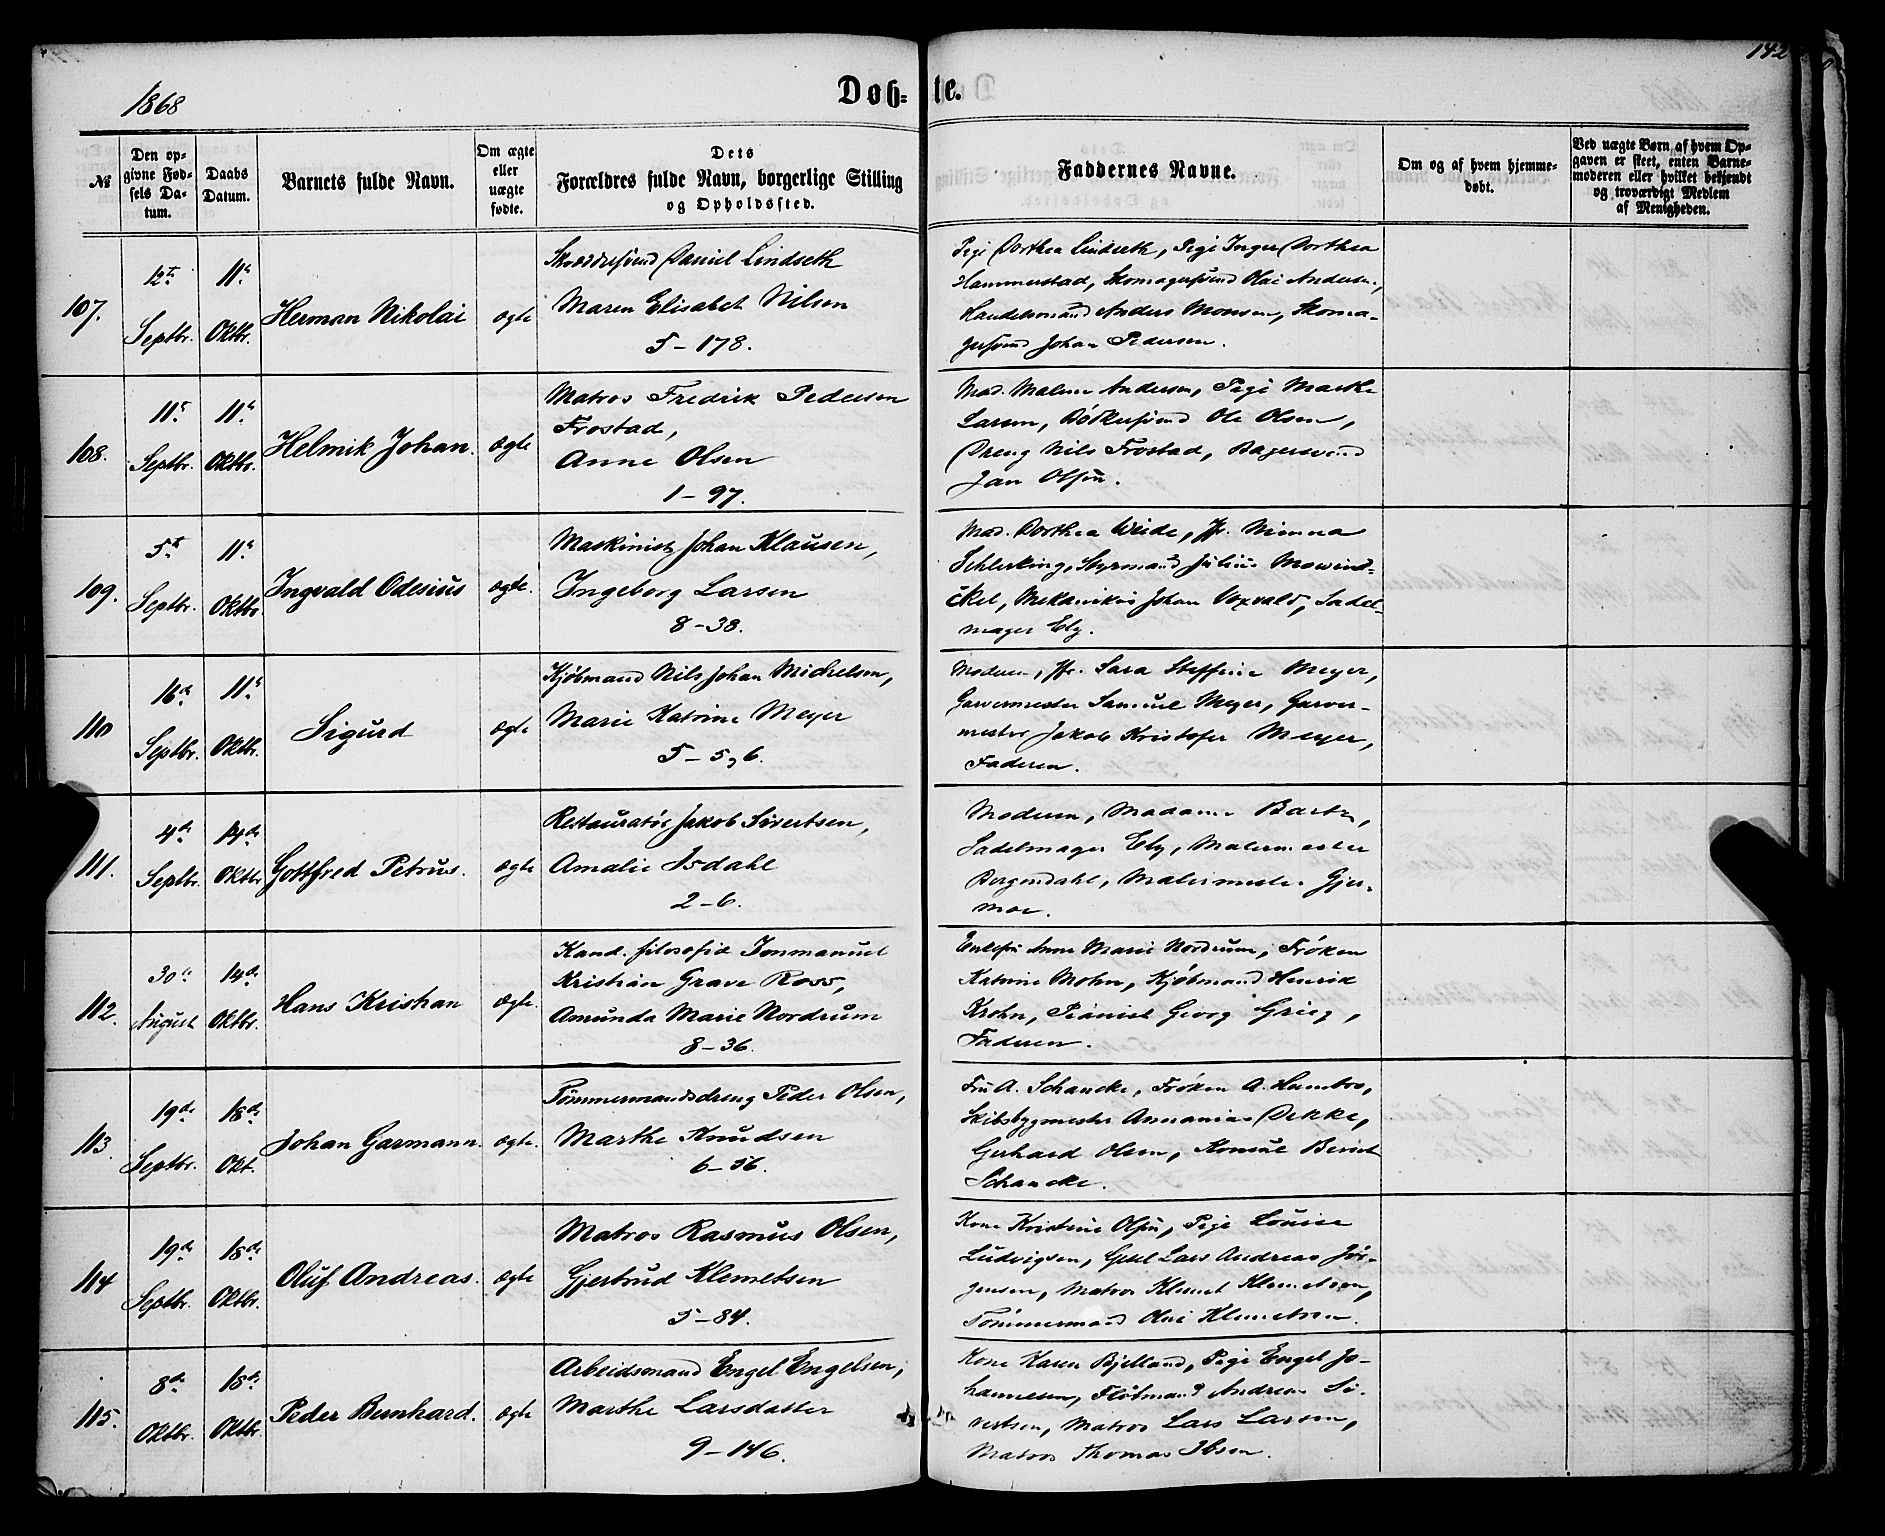 142
1868
Døb=te.
№
Den opgivne Fødsels Datum.
Daabs Datum.
Barnets fulde Navn.
Om ægte eller uægte fødte.
Dets Forældres fulde Navn, borgerlige Stilling og Opholdssted.
Faddernes Navne.
Om og af hvem hjemmedøbt.
Ved uægte Børn af hvem Opgaven er skeet, enten Barnemoderen eller hvilket bekjendt og troværdigt Medlem af Menigheden.
107.
12te Septbr.
11te Oktbr.
Herman Nikolai
ægte
Daniel Lindseth
Maren Elisabet Nilsen
5 – 178.
Pige Dorthea Lindseth, Pige Inger Dorthea
Hammerstad, Skomagersvend Olai Andersen,
Handelsmand Anders Monsen, Skoma-
gersvend Johan Pedersen.
108.
11te Septbr.
11te Oktbr.
Helmik Johan.
ægte
Matros Fredrik Pedersen
Frostad,
Anne Olsen
1 – 97.
Mad. Malene Andersen, Pige Marthe
Larsen, Bødkersvend Ole Olsen,
Dreng Nils Frostad, Bagersvend
Jan Olsen.
109.
5te Septbr.
11te Oktbr.
Ingvald Odesius
ægte.
Maskinist Johan Klausen,
Ingeborg Larsen
8 – 38.
Mad. Dorthea Weide, Jfr. Minna
Styrmand Julius Mowinc-
ckel, Mekanikus Johan Sadel-
mager Ely.
110
16de Septbr.
11te Oktbr.
Sigurd
ægte
Kjøbmand Nils Johan Michelsen,
Marie Katrine Meyer
5 – 5, 6.
Moderen, Jfr. Sara Steffine Meyer,
Garvermester Samuel Meyer, Garver-
mester Jakob Kristofer Meyer,
Faderen.
111.
4de Septbr.
14de Oktbr.
Gottfred Petrus.
ægte
Restauratør Jakob Sivertsen,
Amalie Isdahl
2 – 6.
Moderen, Madame
Sadelmager Ely, Malermester
Bergendahl, Malermester Gjer-
moe.
112.
30te August
14de Oktbr.
Hans Kristian
ægte.
Kand. filosofiæ Immanuel
Kristian Grave Ross,
Amunda Marie Nordrum
8 – 36.
Enkefru Anne Marie Nordrum, Frøken
Katrine Mohn, Kjøbmand Henrik
Krohn, Pianist Georg Grieg,
Faderen.
113.
19de Septbr.
18de Okt.
Johan Garmann.
ægte.
Tømmermandsdreng Peder Olsen,
Marthe Knudsen
6 – 56.
Fru A. Schancke, Frøken A. Hambro,
Skibsbygmester Annanias Dekke,
Gerhard Olsen, Konsul Bernt
Schancke.
114
19de Septbr.
18de Oktbr.
Oluf Andreas.
ægte
Matros Rasmus Olsen,
Gjertrud Klemetsen
5 – 84.
Kone Kristine Olsen, Pige Louise
Ludvigsen, Gesel Lars Andreas Jør-
gensen, Matros Klemet Klemetsen,
Tømmermand Klemetsen.
115.
8de Oktbr.
18de Oktbr.
Peder Bernhard.
ægte
Arbeidsmand Engel Engelsen,
Marthe Larsdatter
9 – 146.
Kone Karen Bjelland, Pige Engel Jo-
hannesen, Flotmand Andreas Si-
vertsen, Matros Lars Larsen,
Matros Thomas Ibsen.